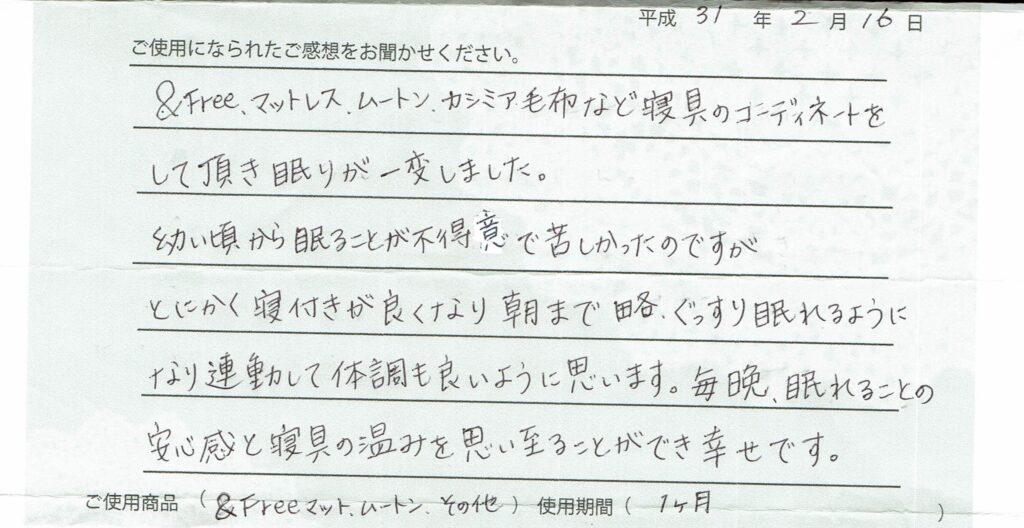 平成 31 年 2 月 16 日
ご使用になられたご感想をお聞かせください。
&Free、マットレス、ムートン、カシミア毛布など寝具のコーディネートを
して頂き眠りが一変しました。
幼い頃から眠ることが不得意で苦しかったのですが
とにかく寝付きが良くなり朝まで略、ぐっすり眠れるように
なり連動して体調も良いように思います。毎晩、眠れることの
安心感と寝具の温みを思い至ることができ幸せです。
ご使用商品 ( &Freeマット、ムートン、その他 ) 使用期間 ( 1ヶ月 )